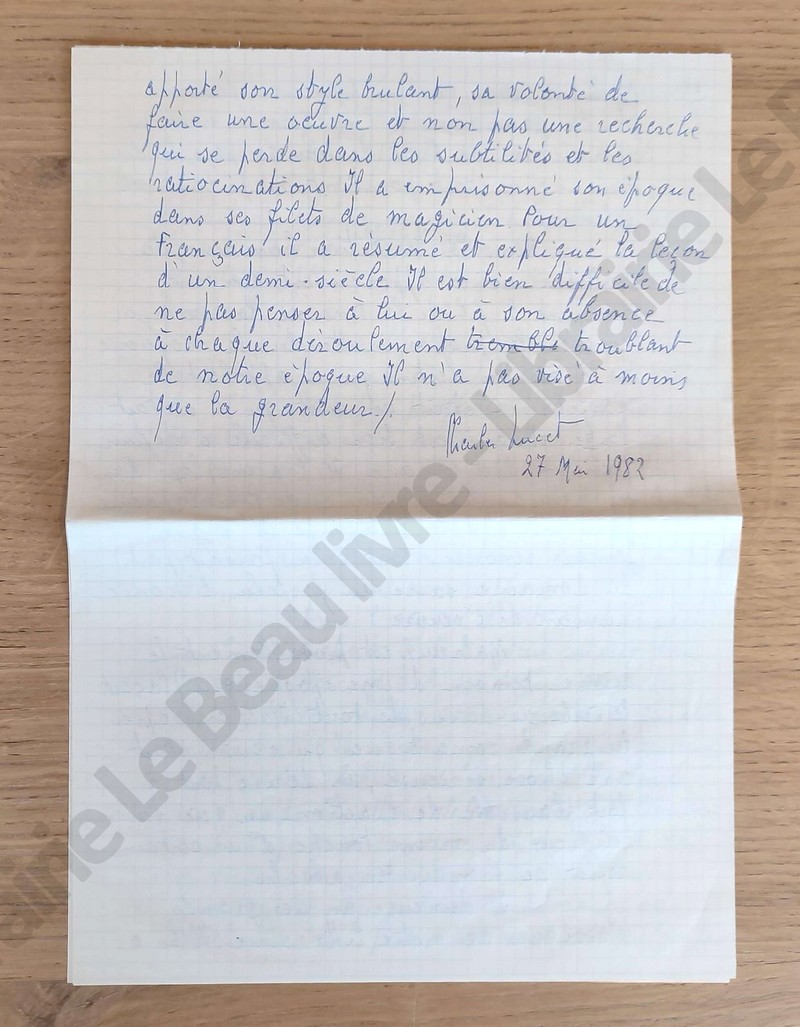 apporté son style brulant, sa volonté de
faire une oeuvre et non pas une recherche
qui se perde dans les subtilités et les
ratiocinations Il a emprisonné son époque
dans ses filets de magicien Pour un
Français il a résumé et expliqué la leçon
d'un demi-siècle Il est bien difficile de
ne pas penser à lui ou à son absence
à chaque déroulement tremble troublant
de notre époque Il n'a pas visé à moins
que la grandeur./.
Charles Lucet
27 Mai 1982
Librairie Le Beau livre - Librairie Le B